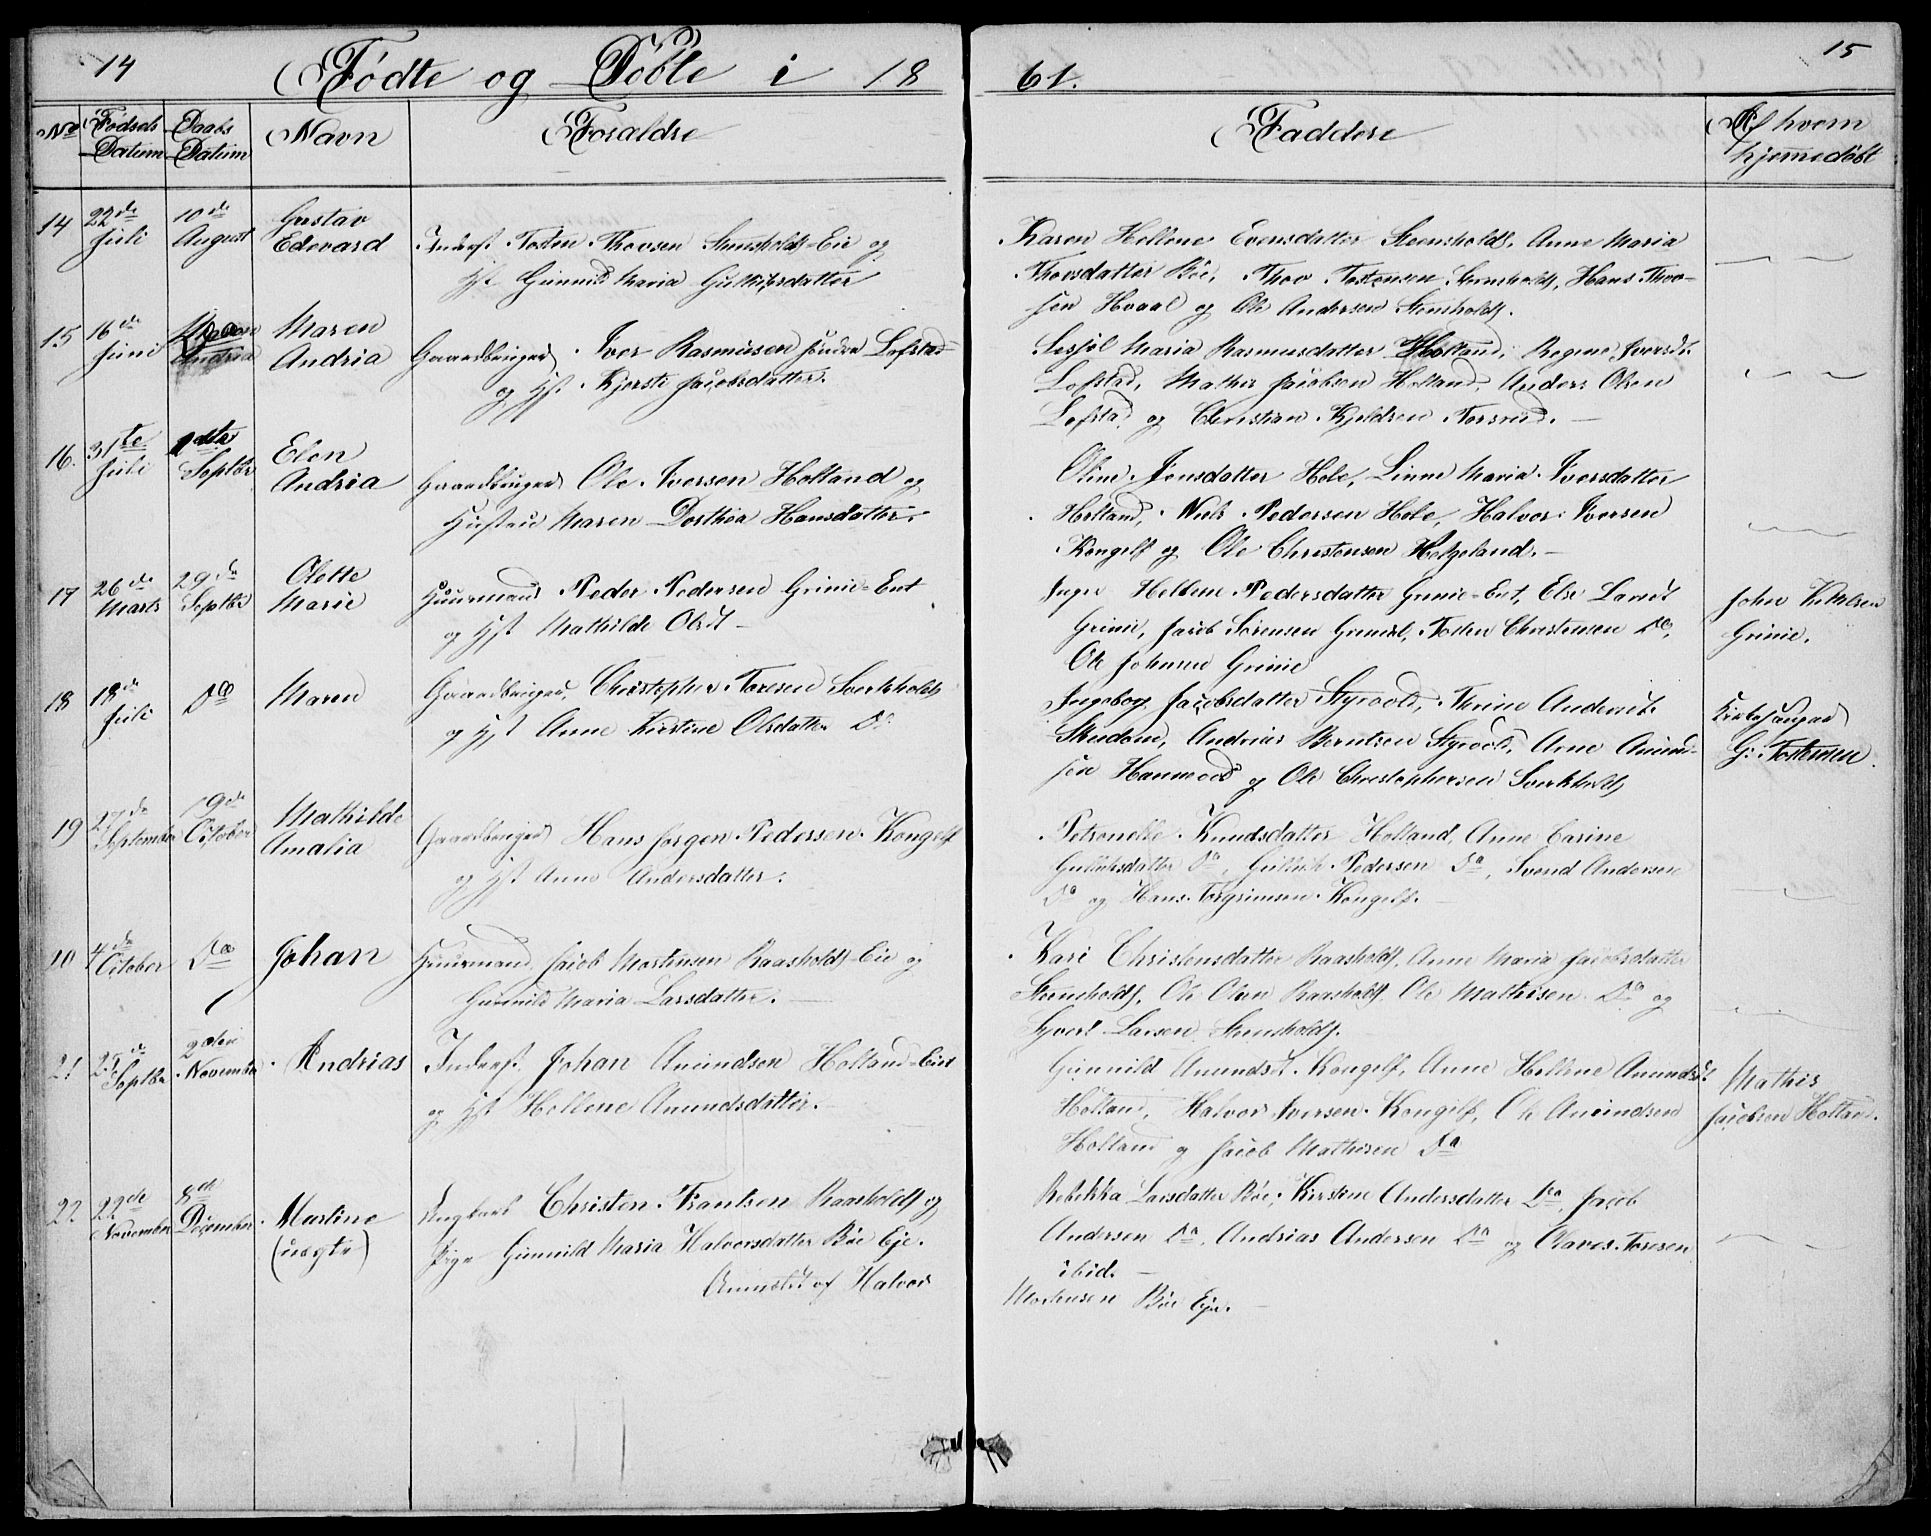 14
Fødte og Døbte i 18
61.
15
No
Fødsels Datum
Daabs Datum
Navn
Foraldre
Faddere
Af hvem hjemmedøbt
14 22de Juli 10de August Gustav Edevard
Inderst Tosten Thovsen Steensholdt-Eie og
Hst Gunnild Maria Gulliksdatter
Karen Hellene Evensdatter Steensholdt, Anne Maria
Thorsdatter Bøe, Thov Tostensen Steensholdt, Hans Thov-
sen Hvaal og Ole Andersen Steensholdt.
15 16de Juni Maren Andria
Gaardbruger Iver Rasmusen søndre Løfstad
og Hst Kjersti Jacobsdatter.
Maria Rasmusdatter Holland, Regene Iversdt.
Løfstad, Mathis Jacobsen Holland, Anders Olsen
Løfstad og Christian Kjeldsen
16. 31te Juli Septbr Elen Andria
Gaardbruger Ole Iversen Holland og
Hustru Maren Dorthea Hansdatter.
Oline Jensdatter Hole, Linne Maria Iversdatter
Holland, Niels Pedersen Hole, Halvor Iversen
Kongelf og Ole Christensen Helgeland.
17 26de Marts 29de Septbr Olette Marie
Huusmand Peder Pedersen Grinie-Ent
og Hst Mathilde Olsdt
Inger Hellene Pedersdatter Grinie-Ent, Else Larsdt
Grinie, Jacob Sørensen Tosten Christensen Do,
Ole Johnsen Grinie
John Kittelsen
Grinie.
18 18de Juli Do Maren
Gaardbruger Christopher Toresen Sverkholdt
og Hst Anne Kirstine Olsdatter Do
Ingebog Jacobsdatter Styrvold, Thrine Andersdt.
Andreas Berntsen Styrvold, Arne Anund-
sen Hanevold og Ole Christophersen Sverkholdt
Kirkesanger
G: Tostensen.
19 27de September October Mathilde Amalia
Gaardbruger Hans Jørgen Pedersen Kongelf
og Hst Anne Andersdatter.
Petronelle Knudsdatter Holland, Anne Carine
Gulliksdatter Do, Gullik Pedersen Do, Svend Andersen
Do og Hans Torgrimsen Kongelf.
20 4de October Do Johan
Huusmand Jacob Mortensen Raasholdt-Eie og
Gunnild Maria Larsdatter.
Kari Christensdatter Raasholdt, Anne Maria Jacobsdatter
Steensholdt, Ole Olsen Raasholdt, Ole Mathisen Do og
Syvert Larsen Steensholdt.
21 Septbr November Andrias
Inderst Johan Anundsen Holland-Eiet
og Hst Hellene Anundsdatter.
Gunnild Anundsdt. Kongelf, Anne Hellene Anundsdt
Holland, Halvor Iversen Kongelf, Ole Anundsen
Holland og Jacob Mathisen Do
Mathis
Jacobsen Holland.
22 22de November 8de December Martine (uægte)
Ungkarl Christen Frantsen Raasholdt og
Pige Gunnild Maria Halvorsdatter Bøe Eje.
Anmeldt af Halvor
Rebekka Larsdatter Bøe, Kirstine Andersdatter Do, Jacob
Andersen Do, Andrias Andersen Do og Olaves Toresen
ibid.
Mortensen Bøe Eje.